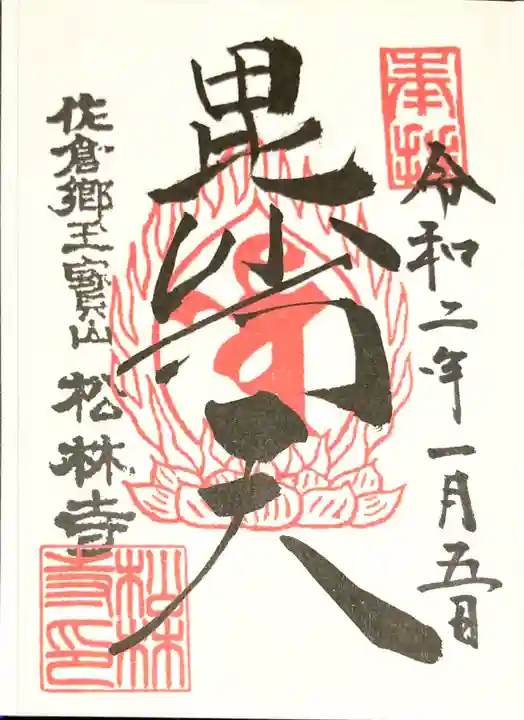 奉拝
令和二年一月五日
毘沙門天
佐倉郷玉寶山 松林寺
松林寺印